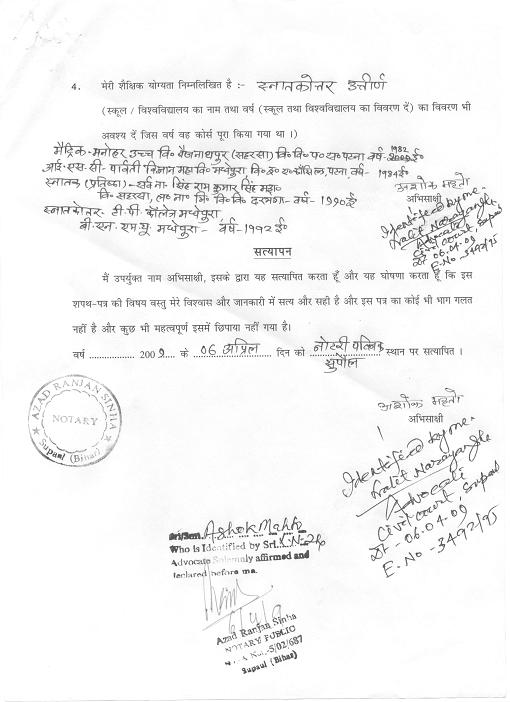 4. मेरी शैक्षिक योग्यता निम्नलिखित है :- स्नातकोत्तर उत्तीर्ण
(स्कूल / विश्वविद्यालय का नाम तथा वर्ष (स्कूल तथा विश्वविद्यालय का विवरण दें) का विवरण भी
अवश्य दें जिस वर्ष वह कोर्स पूरा किया गया था ।)
मैट्रिक- मनोहर उच्च वि० बैजनाथपुर (सहरसा) वि० वि० प० स० पटना वर्ष- 1982 ई०
आई० एस० सी- पार्वती विज्ञान महा० वि० मधेपुरा वि० इ० शि० कौंसिल, पटना वर्ष- 1984 ई०
स्नातक (प्रतिष्ठा)- सर्व ना० सिंह राम कुमार सिंह महा०
वि० सहरसा, ल० ना० मि० वि० वि० दरभंगा- वर्ष- 1990 ई०
स्नातकोत्तर- टी. पी. कॉलेज मधेपुरा
बी. एन. एम. यू. मधेपुरा - वर्ष- 1992 ई०
अशोक महतो
अभिसाक्षी
Identified by me.
Lalit Narayan
Advocate
Civil Court, Supaul
dt- 06.04.09
E. No-3492/95
सत्यापन
मैं उपर्युक्त नाम अभिसाक्षी, इसके द्वारा यह सत्यापित करता हूँ और यह घोषणा करता हूँ कि इस
शपथ-पत्र की विषय वस्तु मेरे विश्वास और जानकारी में सत्य और सही है और इस पत्र का कोई भी भाग गलत
नहीं है और कुछ भी महत्वपूर्ण इसमें छिपाया नहीं गया है।
वर्ष .................. 2009 के 06 अप्रिल दिन को नोटरी पब्लिक स्थान पर सत्यापित ।
सुपौल
AZAD RANJAN SINHA
NOTARY
Supaul (Bihar)
अशोक महतो
अभिसाक्षी
Identified by me.
Lalit Narayan
Advocate
Civil Court, Supaul
dt- 06.04.09
E. No-3492/95
Sri/Smt. Ashok Mahto
Who is Identified by Sri. L.N.
Advocate Solemnly affirmed and
declared before me.
6/4/9
Azad Ranjan Sinha
NOTARY PUBLIC
5/02/687
Supaul (Bihar)